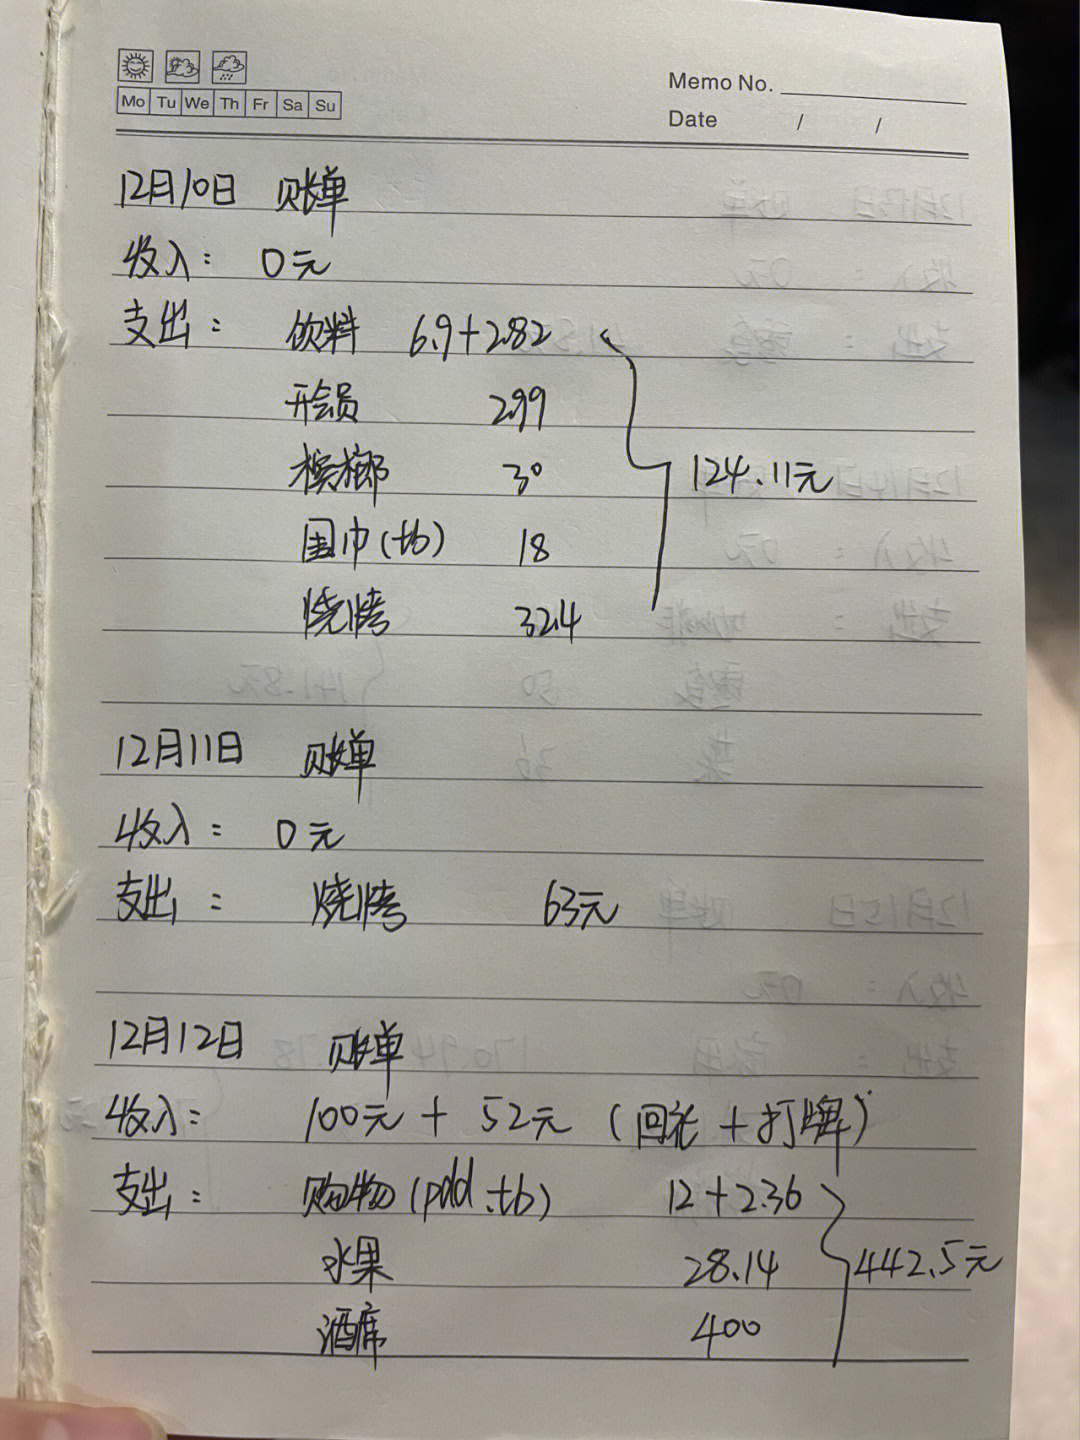 Mo Tu We Th Fr Sa Su
Memo No.
Date / /
12月10日 账单
收入: 0元
支出: 饮料 6.9+2.82
开会员 299
槟榔 30
围巾(tb) 18
烧烤 32.4
124.11元
12月11日 账单
收入: 0元
支出: 烧烤 63元
12月12日 账单
收入: 100元 + 52元 (回礼 + 打牌)
支出: 购物(pdd.tb) 12+2.36
水果 28.14
酒席 400
442.5元